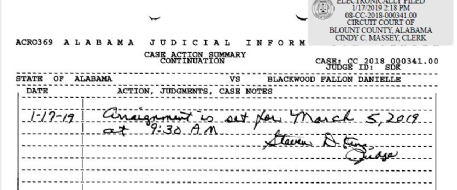 ELECTRONICALLY FILED
1/17/2019 2:18 PM
08-CC-2018-000341.00
CIRCUIT COURT OF
BLOUNT COUNTY, ALABAMA
CINDY C. MASSEY, CLERK
ACR0369 ALABAMA JUDICIAL INFORM
CASE ACTION SUMMARY
CONTINUATION
CASE: CC 2018 000341.00
JUDGE ID: SDK
STATE OF ALABAMA VS BLACKWOOD FALLON DANIELLE
DATE ACTION, JUDGMENTS, CASE NOTES
1-17-19 Arraignment is set for March 5, 2019
at 9:30 A.M
Steven D. King
Judge